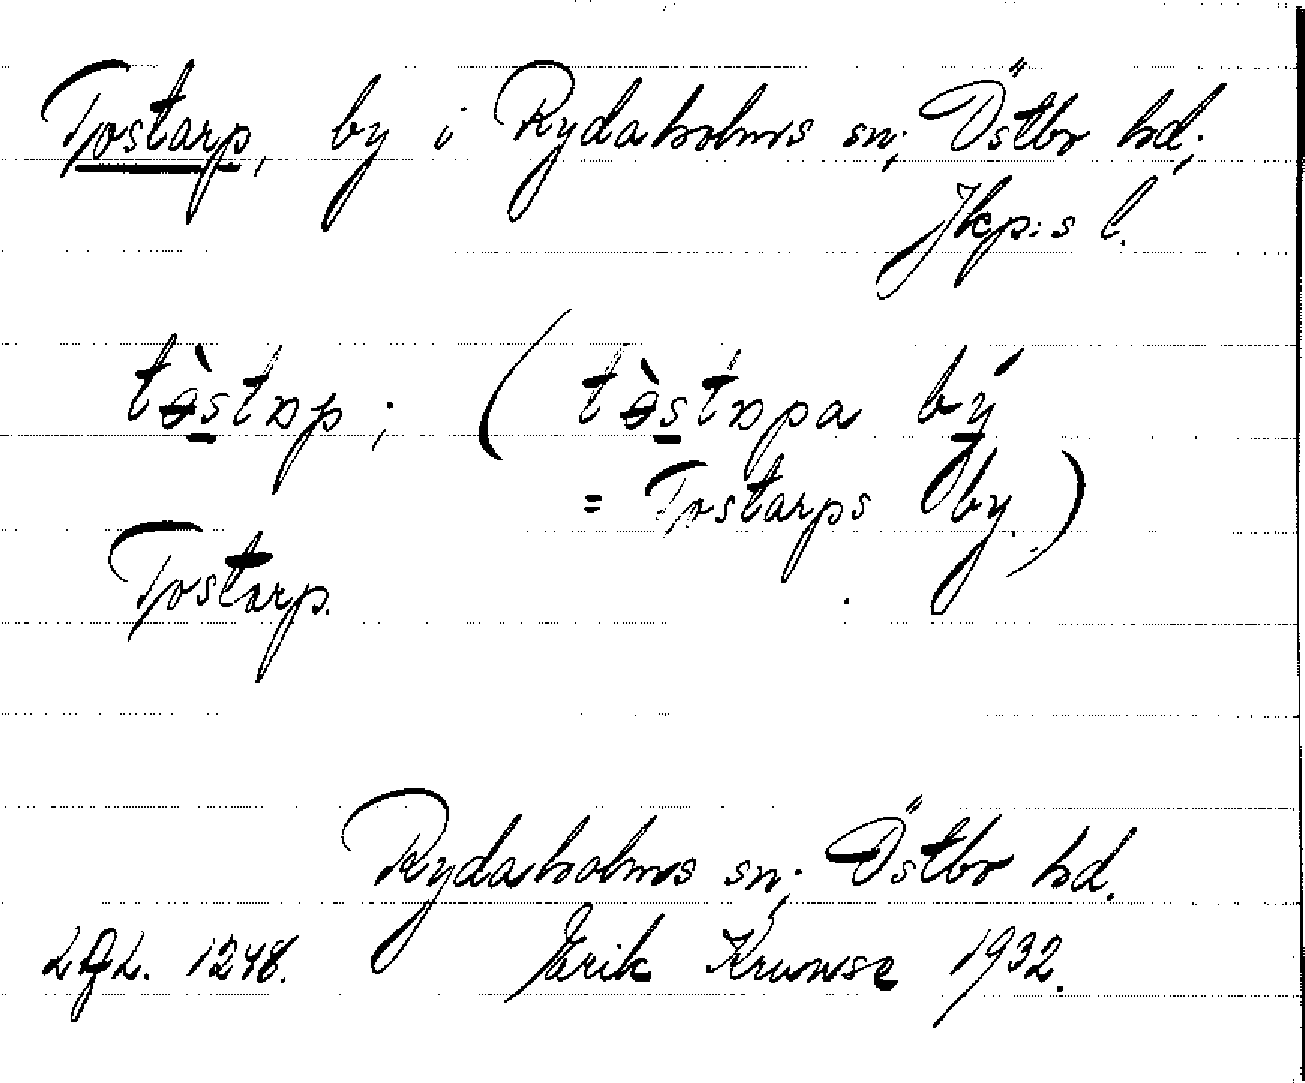 Tostarp, by i Rydaholms sn; Östbo hd;
Jkp:s l.
by
= Tostarps by.)
Tostarp.
Rydaholms sn; Östbo hd.
LGL. 1248. Erik Krunse 1932.